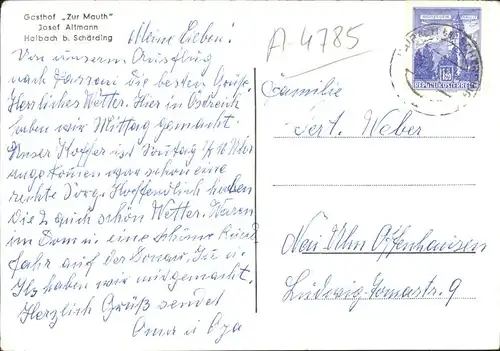 Gasthof „Zur Mauth"
Josef Altmann
Haibach b. Schärding
Meine Lieben!
Von unserem Ausflug
nach Passau die besten Grüße.
Herrliches Wetter. Hier in Östreich
haben wir Mittag gemacht.
Unser Koffer ist Sontag 1/2 10 Uhr
angekomen war schon eine
rechte Sorge. Hoffendlich haben
die 2 auch schön Wetter. Waren
im Dom u. eine schöne Rund
fahr auf der Donau, Inn u.
Ilz haben wir mitgemacht.
Herzlich Grüß sendet
Oma u Opa
A 4785
REPUBLIK ÖSTERREICH
Familie
Weber
Neu Ulm Offenhausen
Ludwig-Tomastr. 9